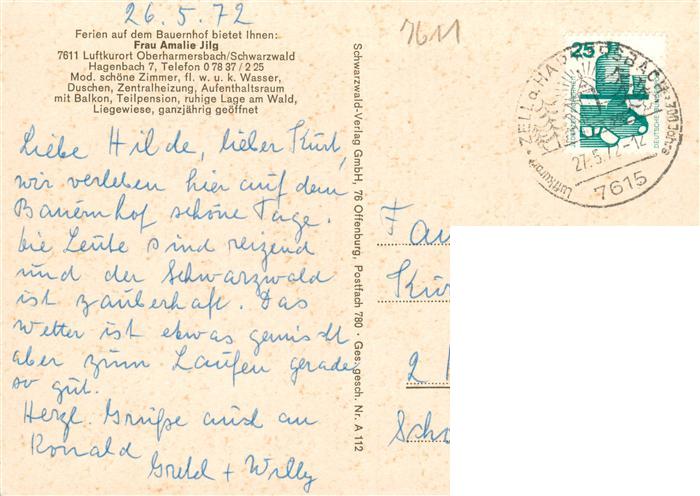 26.5.72
7611
Ferien auf dem Bauernhof bietet Ihnen:
Frau Amalie Jilg
7611 Luftkurort Oberharmersbach/Schwarzwald
Hagenbach 7, Telefon 0 78 37 / 2 25
Mod. schöne Zimmer, fl. w. u. k. Wasser,
Duschen, Zentralheizung, Aufenthaltsraum
mit Balkon, Teilpension, ruhige Lage am Wald,
Liegewiese, ganzjährig geöffnet
Liebe Hilde, lieber Kurt,
wir verleben hier auf dem
Bauernhof schöne Tage.
Die Leute sind reizend
und der Schwarzwald
ist zauberhaft. Das
Wetter ist etwas gemischt
aber zum Laufen gerade
so gut.
Herzl. Grüße auch an
Ronald
Gretel + Willy
Schwarzwald-Verlag GmbH, 76 Offenburg, Postfach 780 · Ges. gesch. Nr. A 112
25
DEUTSCHE BUNDESPOST
ZELL a. HARMERSBACH
Luftkurort
27.5.72-12
7615
Fam
Kur
2
Scho